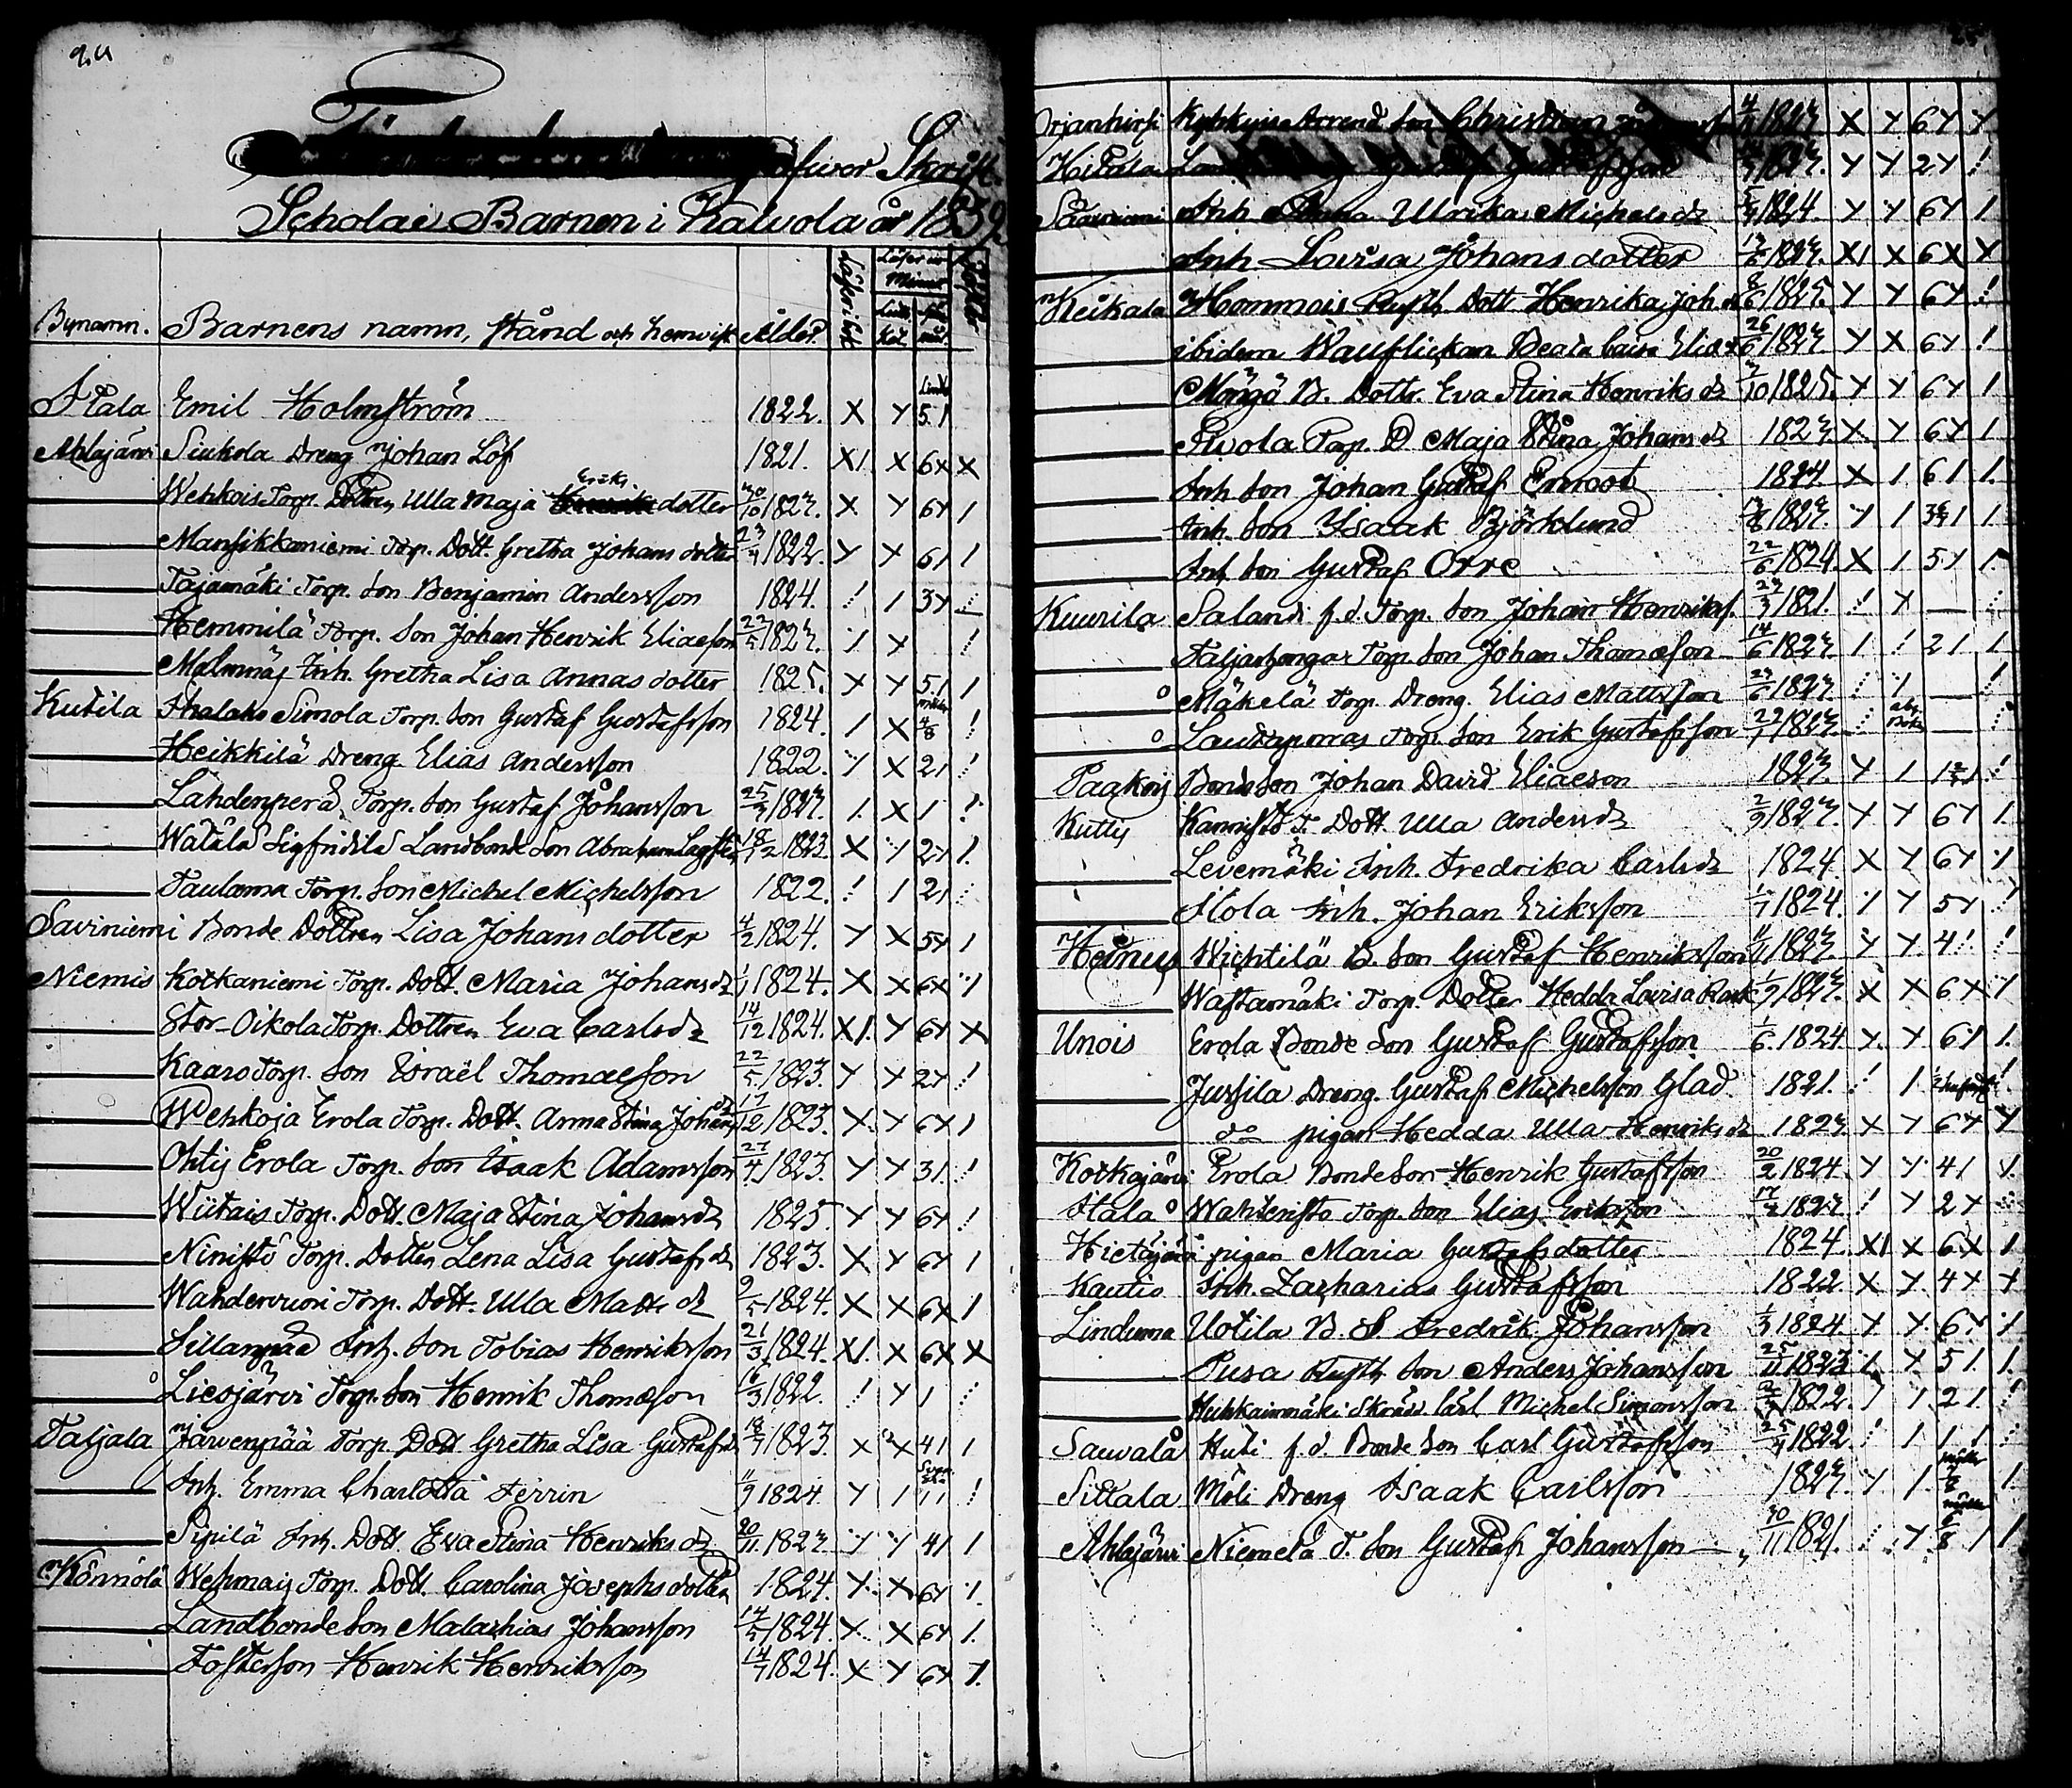 Förteckning öfver Skrift
Scholae Barnen i Kalvola år 1839
Bynamn. Barnens namn, stånd och hemvist Ålder. Läser i bok Läser ur Minnet
Itala Emil Holmström 1822. X Y 5 1
Ahlajärvi Siukola Dreng Johan Löf 1821. X1 X 6x X
Wehkois Torp. Dottren Ulla Maja Eriks dotter 30/10 1823. X Y 6Y 1
Mansikkaniemi Torp. Dott. Gretha Johans dotter 23/4 1822. Y Y 61 1
Tajamäki Torp. Son Benjamin Andersson 1824. ! 1 3Y
Hemmilä Torp. Son Johan Henrik Eliaeson 22/5 1823. 1 X !
Malmnäs Inh. Gretha Lisa Annas dotter 1825. Y Y 5.1 1
Kutila Simola Torp. Son Gustaf Gustafsson 1824. 1 X 4/8 !
Heikkilä Dreng Elias Andersson 1822. Y X 21 !
Lahdenperä Torp. Son Gustaf Johansson 25/3 1823. 1. X 1 !
Watala Sigfridila Landbonde Son Abraham 18/12 1823. X Y 2Y 1.
Taulama Torp. Son Michel Michelsson 1822. ! 1 21
Saviniemi Bonde Dottren Lisa Johans dotter 4/2 1824. Y X 5Y 1
Niemis Kotkaniemi Torp. Dott. Maria Johans dr 1/1 1824. X X 6X Y
Stor-Oikola Torp. Dottren Eva Carls dr 14/12 1824. X1. Y 6Y X
Kaaro Torp. Son Israël Thomaeson 22/5 1823. Y Y 2Y !
Wehkoja Erola Torp. Dott. Anna Stina Johans dr 17/12 1823. X Y 6Y 1
Ohtis Erola Torp. Son Isaak Adamsson 27/4 1823. Y Y 31. !
Wiitais Torp. Dott. Maja Stina Johans dr 1825. Y Y 6Y !
Ninistö Torp. Dotten Lena Lisa Gustafs dr 1823. X Y 6Y 1
Wahdervuori Torp. Dott. Ulla Matts dr 9/5 1824. X X 6X 1
Sillanpää Inh. Son Tobias Henriksson 21/3 1824. X1. X 6X X
Liesjärvi Torp. Son Henrik Thomæson 16/3 1822. ! Y 1
Taljala Järvenpää Torp. Dott Gretha Lisa Gustafs dr 18/7 1823. X X 41 1
Inh. Emma Charlotta Ferrin 11/9 1824 Y 1 !
Sipilä Inh. Dott. Eva Stina Henriks dr 20/11 1823 Y Y 41 1
Könnölä Wehmais Torp. Dott. Carolina Josephs dotter 1824. Y X 6Y 1.
Landbonde Son Malachias Johansson 14/5 1824. Y X 6Y 1.
Fosterson Henrik Henriksson 14/7 1824. X Y 6Y 1.
Orjanhirsi Arrend. Son Christian 1823 X Y 6Y Y
Kitala 1823. Y Y 2Y !
Saaviniemi Inh Anna Ulrika Michels dr 1824. Y Y 6Y 1.
Inh Lovisa Johans dotter 13/6 1823. X1 X 6X X
Keikala Hommais Rusth. Dott Henrika Joh. dr 8/6 1825. Y Y 6Y !
ibidem Beata Caisa Elias dr 26/6 1823. Y X 6Y !
Mängö B. Dottr. Eva Stina Henriks dr 3/10 1825. Y Y 6Y 1.
Sivola Torp. D Maja Stina Johans dr 1823. X. Y 6Y 1
Inh Son Johan Gustaf Enroot 1824. X 1. 61 1.
Inh. Son Ysaak Björklund 1823. Y 1 1
Inh Son Gustaf Orre 22/6 1824. X 1 5Y 1
Kuurila Salandi f.d. Torp. Son Johan Henriks. 23/3 1821. ! Y —
Taljas Torp. Son Johan Thomæson 14/6 1823. 1 ! 21 1
o Mäkelä Torp. Dreng. Elias Mattsson 23/6 1823 1 — !
o Lautaporras Torp. Son Erik Gustafsson 22/1 1823 —
Paakois Bonde Son Johan David Eliaeson 1823. Y 1 !
Kuttis Kannisto T. Dott Ulla Anders dr 2/9 1823. Y Y 6Y 1
Levemäki Inh. Fredrika Carls dr 1824. X Y 6Y Y
Itola Inh. Johan Eriksson 1/7 1824. Y Y 5Y !
Heinus Wichtilä B. Son Gustaf Henriksson 11/11 1823. Y Y. 4! !
Wastamäki Torp. Dotter Hedda Lovisa 1/9 1823. X X 6X Y
Unois Erola Bonde Son Gustaf Gustafsson 1/6 1824. Y. Y 6Y 1.
Jussila Dreng. Gustaf Michelsson Glad. 1821. ! 1 !
do pigan Hedda Ulla Henriks dr 1823 X Y 6Y Y
Kotkajärvi Erola Bonde Son Henrik Gustafsson 20/2 1824. Y Y 41 Y.
Itala o Wahteristo Torp. Son Elias Eriksson 17/2 1823. ! Y 2Y
Hietajärvi pigan Maria Gustafs dotter 1824. X1 X 6X 1
Kautis Inh. Zacharias Gustafsson 1822. X Y. 4Y Y
Linduma Uotila B. S Fredrik Johansson 1/3 1824. Y Y 6Y Y
Pusa Rusth. Son Anders Johansson 25/11 1823. 1 Y 51. 1.
Huhkainmäki Skräd. Lärl Michel Simonsson 1822. 1 1 21
Sauvala Huti f.d. Bonde Son Carl Gustafsson 25/4 1822. ! 1 1 1
Sittala Möli Dreng Isaak Carlsson 1823. Y 1 7/8 1
Ahlajärvi Niemelä T. Son Gustaf Johansson 30/11 1821. Y 6/8 1 1